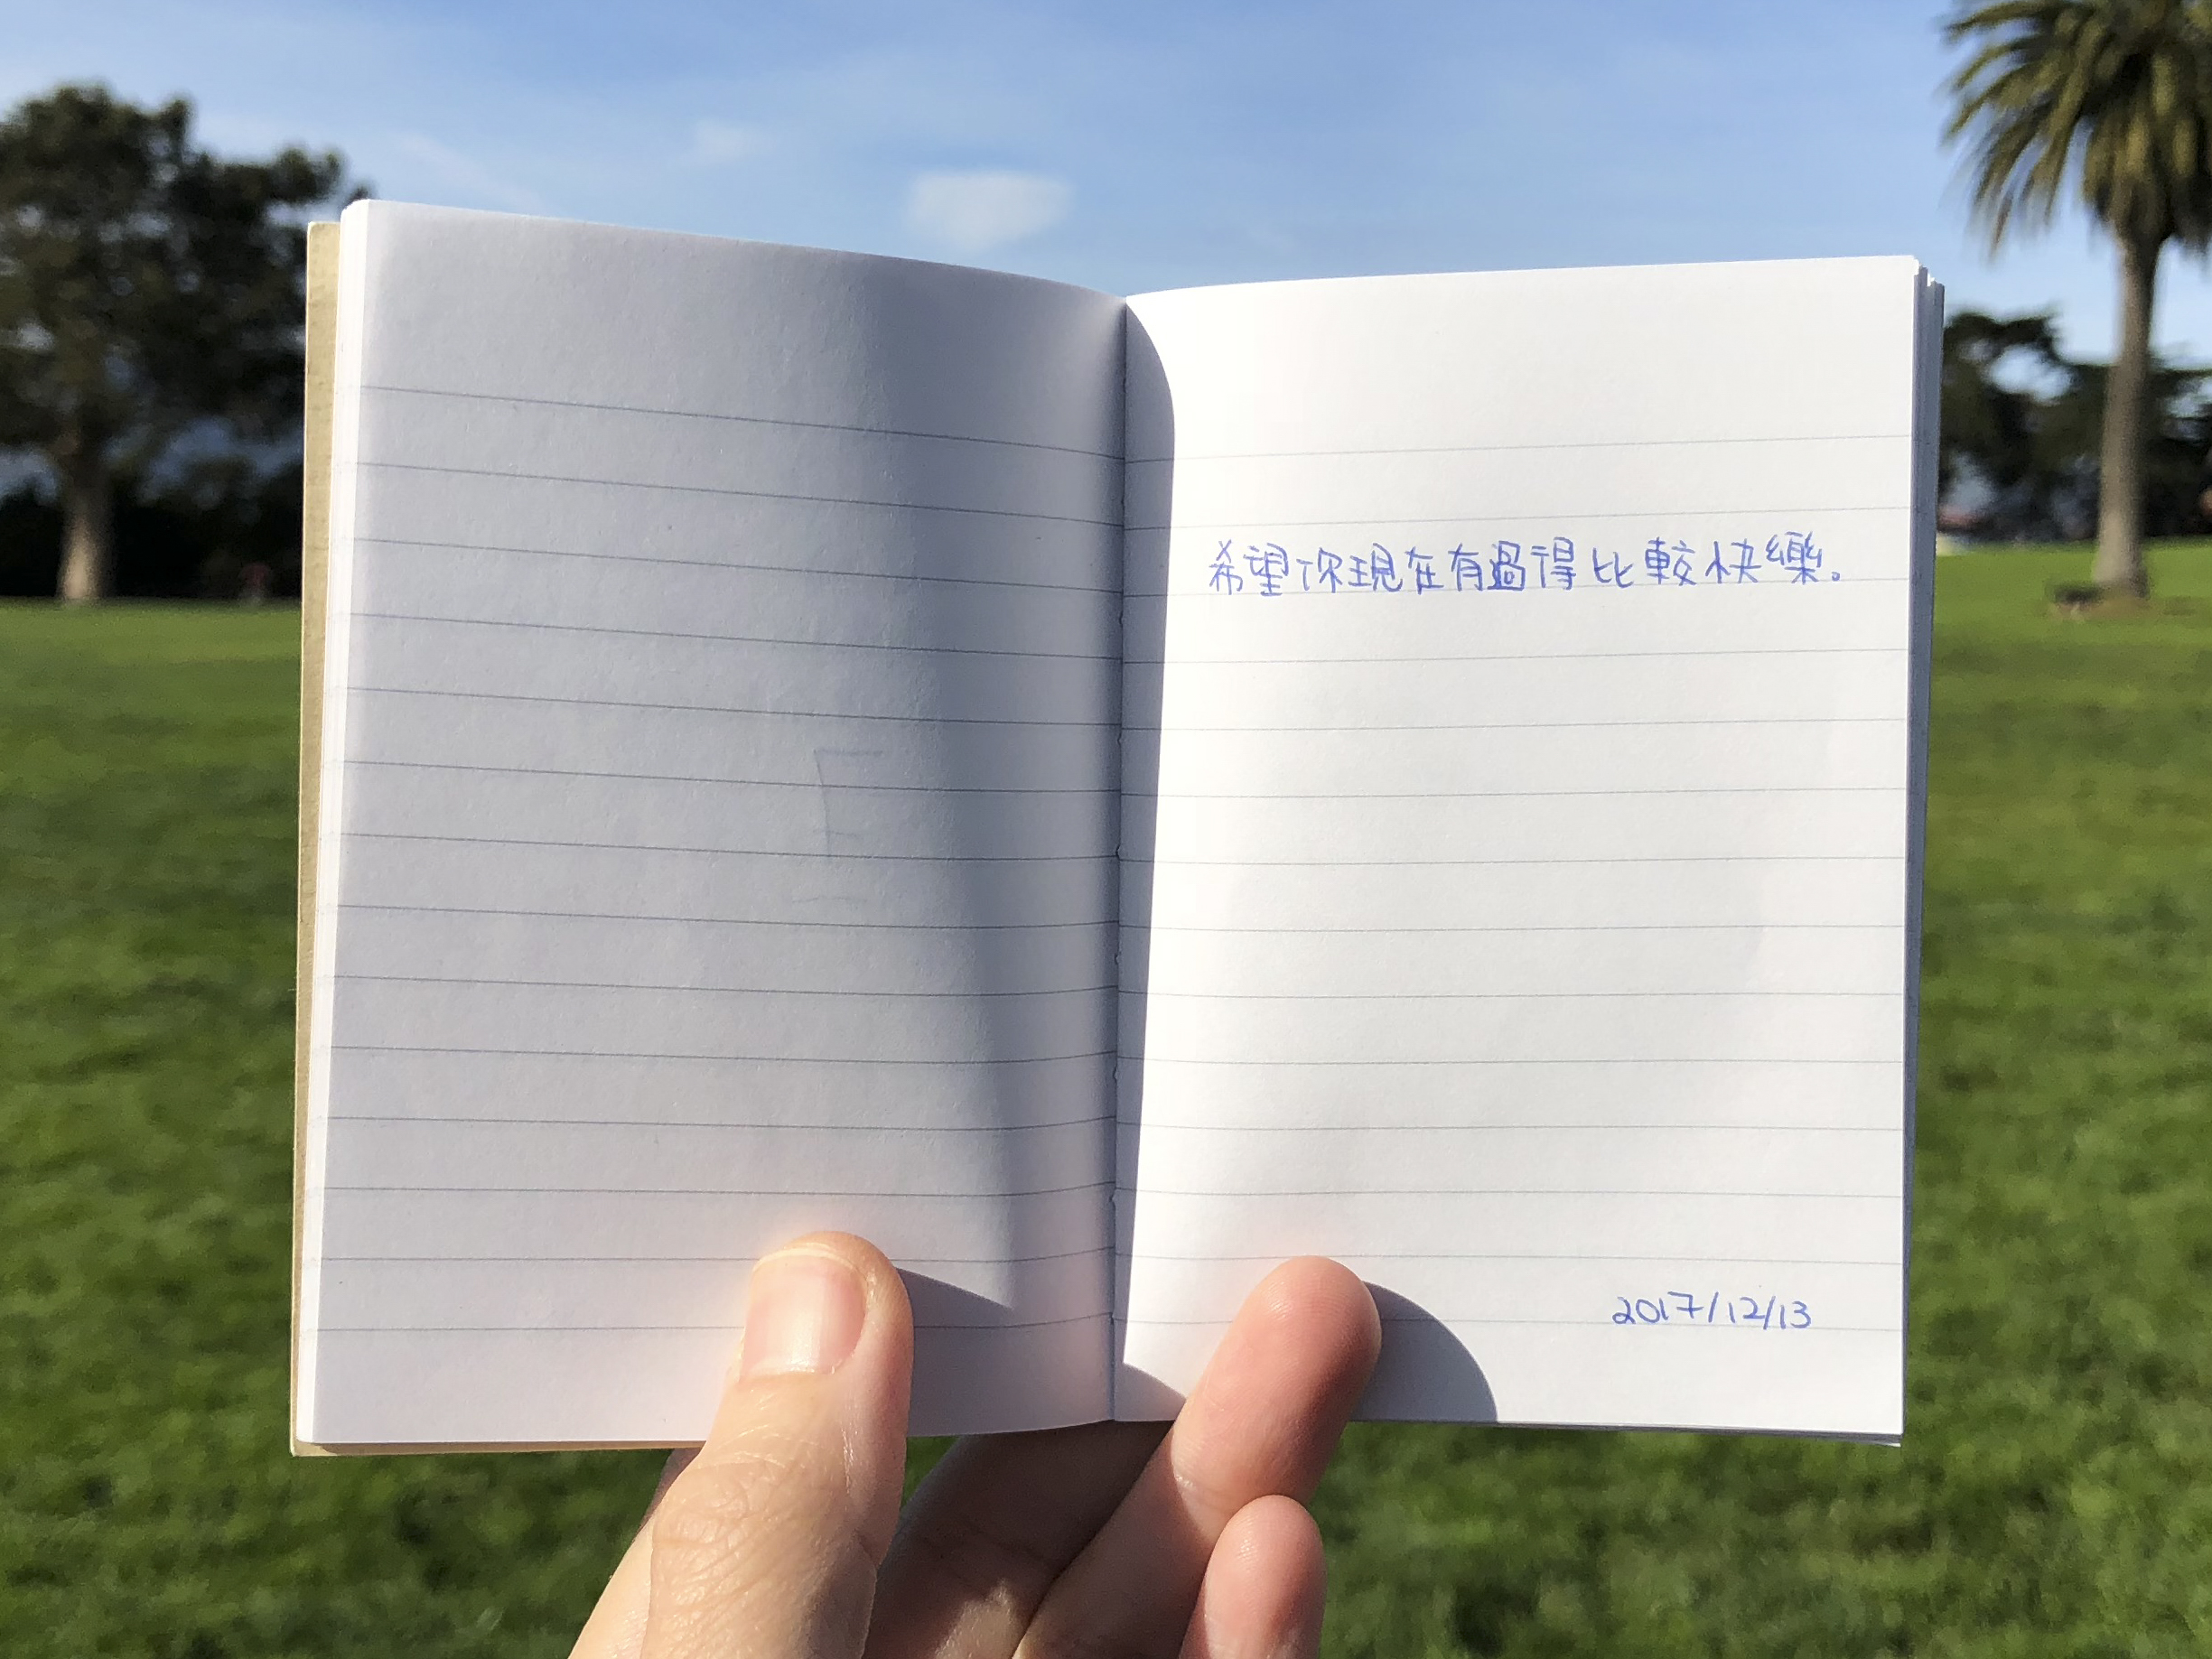 希望你現在有過得比較快樂。
2017/12/13